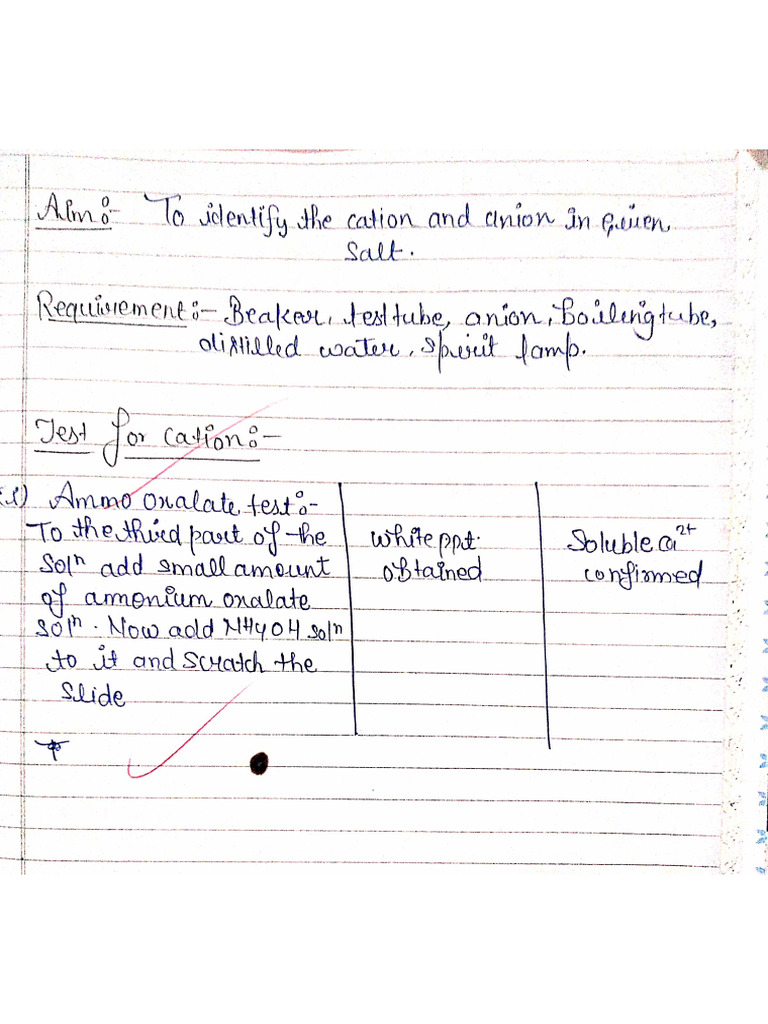 Aim:- To identify the cation and anion in given
salt.
Requirement:- Beaker, test tube, anion, boiling tube,
distilled water, spirit lamp.
Test for cation:-
(1) Ammo oxalate test:-
To the third part of the
solⁿ add small amount
of amonium oxalate
solⁿ. Now add NH4OH solⁿ
to it and scratch the
slide
white ppt.
obtained
Soluble Ca²⁺
confirmed